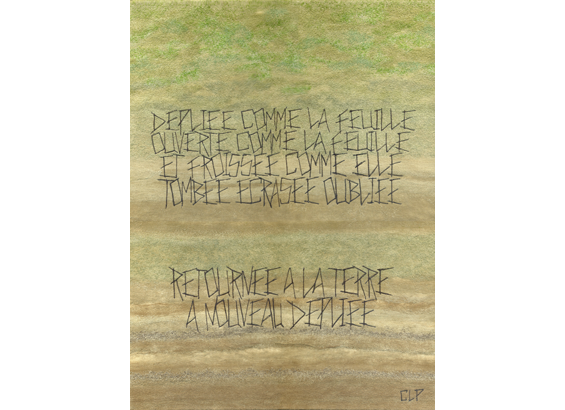 DEPLIEE COMME LA FEUILLE
OUVERTE COMME LA FEUILLE
ET FROISSEE COMME ELLE
TOMBEE ECRASEE OUBLIEE
RETOURNEE A LA TERRE
A NOUVEAU DEPLIEE
CLP